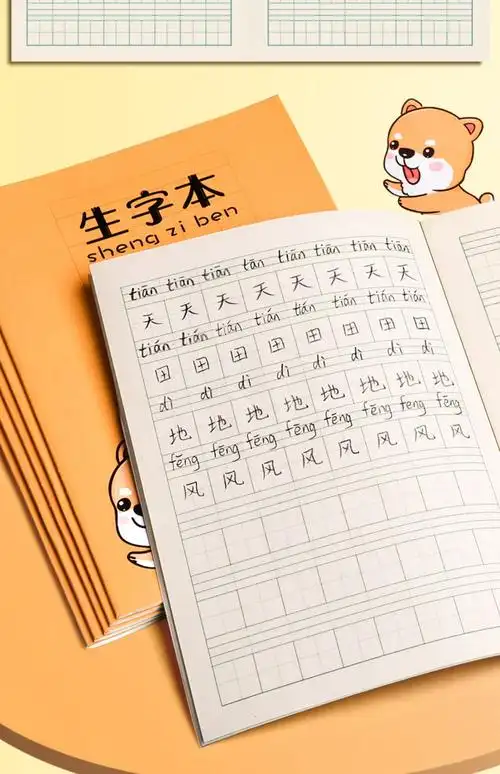 生字本
sheng zi ben
tiān tiān tiān tān tiān tiān tiān tiān
天 天 天 天 天 天 天 天
tián tián tián tián tián tián tián tián
田 田 田 田 田 田 田 田
dì dì dì dì dì dì dì dì
地 地 地 地 地 地 地 地
fēng fēng fēng fēng fēng fēng feng fēng
风 风 风 风 风 风 风 风